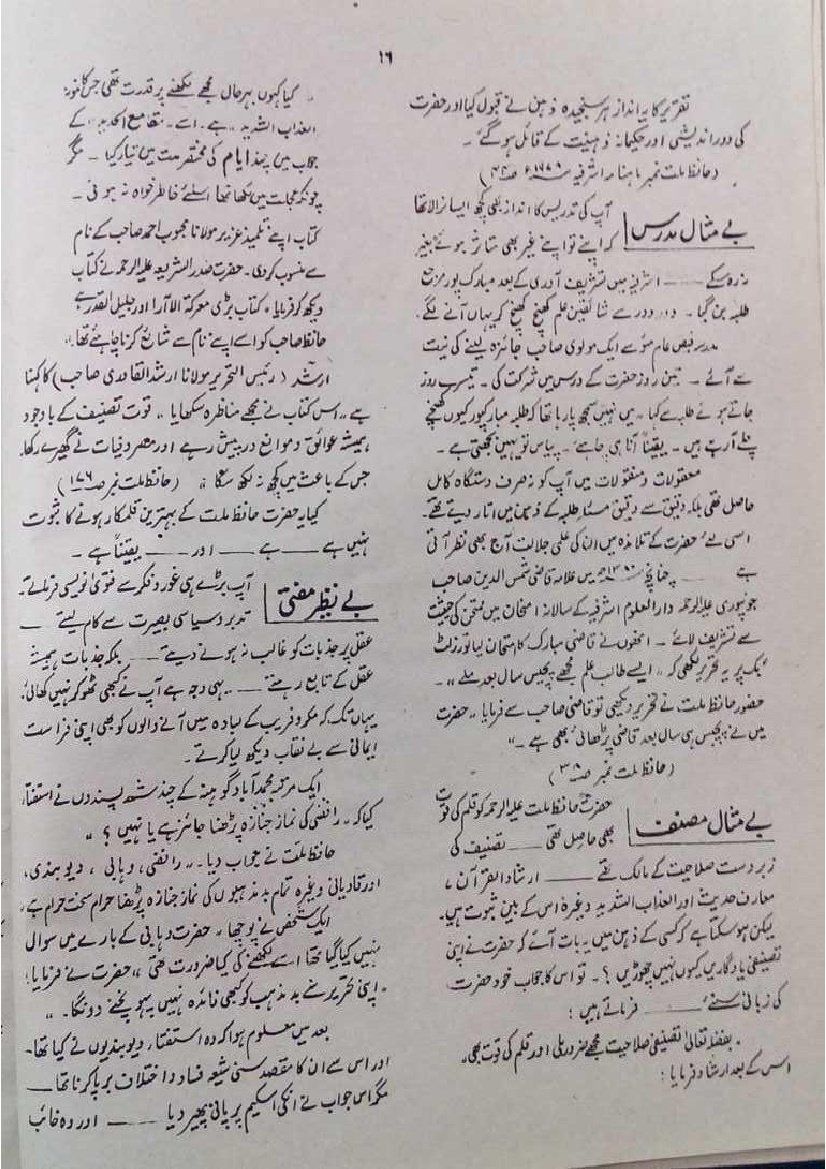 ۱۶
تقریر کا یہ انداز ہر سنجیدہ ذہن نے قبول کیا اور حضرت
کی دور اندیشی اور حکیمانہ ذہنیت کے قائل ہو گئے۔
(حافظ ملت نمبر ماہنامہ اشرفیہ
بے مثال مدرس
آپ کی تدریس کا انداز بھی کچھ ایسا نرالا تھا
کہ اپنے تو اپنے غیر بھی متاثر ہوئے بغیر
نہ رہ سکے ــــ اشرفیہ میں تشریف آوری کے بعد مبارک پور مرجع
طلبہ بن گیا۔ دور دور سے شائقین علم کھنچ کھنچ کر یہاں آنے لگے۔
مدرسہ فیض عام مؤ سے ایک مولوی صاحب جائزہ لینے کی نیت
سے آئے۔ تین روز حضرت کے درس میں شرکت کی۔ تیسرے روز
جاتے ہوئے طلبہ سے کہا۔ میں نہیں سمجھ پا رہا تھا کہ طلبہ مبارکپور کیوں کھنچے
چلے آرہے ہیں۔ یقیناً آنا ہی چاہئے۔ پیاس تو یہیں بجھتی ہے۔
معقولات و منقولات میں آپ کو نہ صرف دستگاہ کامل
حاصل تھی بلکہ دقیق سے دقیق مسئلہ طلبہ کے ذہن میں اتار دیتے تھے۔
اسی لئے حضرت کے تلامذہ میں ان کی علمی جلالت آج بھی نظر آتی
ہے ــــ چنانچہ میں علامہ قاضی شمس الدین صاحب
جونپوری علیہ الرحمہ دارالعلوم اشرفیہ کے سالانہ امتحان میں ممتحن کی حیثیت
سے تشریف لائے۔ انھوں نے قاضی مبارک کا امتحان لیا تو رزلٹ
بک پر یہ تحریر لکھی کہ ,, ایسے طالب علم مجھے پچیس سال بعد ملے ،،۔
حضور حافظ ملت نے تحریر دیکھی تو قاضی صاحب سے فرمایا ,, حضرت
میں نے پچیس ہی سال بعد قاضی پڑھائی بھی ہے ۔"
(حافظ ملت نمبر صـ۳۸)
بے مثال مصنف
حضرت حافظ ملت علیہ الرحمہ کو قلم کی قوت
بھی حاصل تھی ــــ تصنیف کی
زبردست صلاحیت کے مالک تھے ــــ ارشاد القرآن،
معارف حدیث اور العذاب الشدید وغیرہ اس کے بین ثبوت ہیں۔
لیکن ہو سکتا ہے کہ کسی کے ذہن میں یہ بات آئے کہ حضرت نے اپنی
تصنیفی یادگاریں کیوں نہیں چھوڑیں؟۔ تو اس کا جواب خود حضرت
کی زبانی سنئے ــــ فرماتے ہیں:
بفضلہ تعالیٰ تصنیفی صلاحیت مجھے ضرور ملی اور قلم کی قوت بھی۔
اس کے بعد ارشاد فرمایا:
,, کیا کہوں بہرحال مجھے لکھنے پر قدرت تھی جس کا نمونہ
العذاب الشدید ،، ہے۔ اسے ,, مقامع الحدید ،، کے
جواب میں چند ایام کی مختصر مدت میں تیار کیا۔ مگر
چونکہ عجلت میں لکھا تھا اسلئے خاطر خواہ نہ ہوئی۔
کتاب اپنے تلمیذ عزیز مولانا محبوب احمد صاحب کے نام
سے منسوب کر دی۔ حضرت صدر الشریعہ علیہ الرحمہ نے کتاب
دیکھ کر فرمایا، کتاب بڑی معرکۃ الآرا اور جلیل القدر ہے
حافظ صاحب کو اسے اپنے نام سے شائع کرنا چاہئے تھا۔
ارشد (رئیس التحریر مولانا ارشد القادری صاحب) کا کہنا
ہے ,, اس کتاب نے مجھے مناظرہ سکھایا ،، قوت تصنیف کے باوجود
ہمیشہ عوائق و موانع درپیش رہے اور مصروفیات نے گھیرے رکھا۔
جس کے باعث میں کچھ نہ لکھ سکا ،، (حافظ ملت نمبر صـ۱۷۶)
کیا یہ حضرت حافظ ملت کے بہترین قلمکار ہونے کا ثبوت
نہیں ہے ــــ ہے ــــ اور ــــ یقیناً ہے۔
بے نظیر مفتی
آپ بڑے ہی غور و فکر سے فتویٰ نویسی فرماتے۔
تدبر و سیاسی بصیرت سے کام لیتے ــــ
عقل پر جذبات کو غالب نہ ہونے دیتے ــــ بلکہ جذبات ہمیشہ
عقل کے تابع رہتے ــــ یہی وجہ ہے آپ نے کبھی ٹھوکر نہیں کھائی،
یہاں تک کہ مکر و فریب کے لبادہ میں آنے والوں کو بھی اپنی فراست
ایمانی سے بے نقاب دیکھ لیا کرتے۔
ایک مرتبہ محمد آباد گوہنہ کے چند شر پسندوں نے استفتاء
کیا کہ ,, رافضی کی نماز جنازہ پڑھنا جائز ہے یا نہیں؟ ،،
حافظ ملت نے جواب دیا۔ ,, رافضی، وہابی، دیوبندی،
اور قادیانی وغیرہ تمام بد مذہبوں کی نماز جنازہ پڑھنا حرام سخت حرام ہے۔
ایک شخص نے پوچھا، حضرت وہابی کے بارے میں سوال
نہیں کیا گیا تھا اسے لکھنے کی کیا ضرورت تھی،، حضرت نے فرمایا؛
,, اپنی تحریر سے بد مذہب کو کبھی فائدہ نہیں پہونچنے دونگا۔ ،،
بعد میں معلوم ہوا کہ وہ استفتاء دیوبندیوں نے کیا تھا۔
اور اس سے ان کا مقصد سنی شیعہ فساد و اختلاف برپا کرنا تھا ــــ
مگر اس جواب نے انکی اسکیم پر پانی پھیر دیا ــــ اور وہ خائب